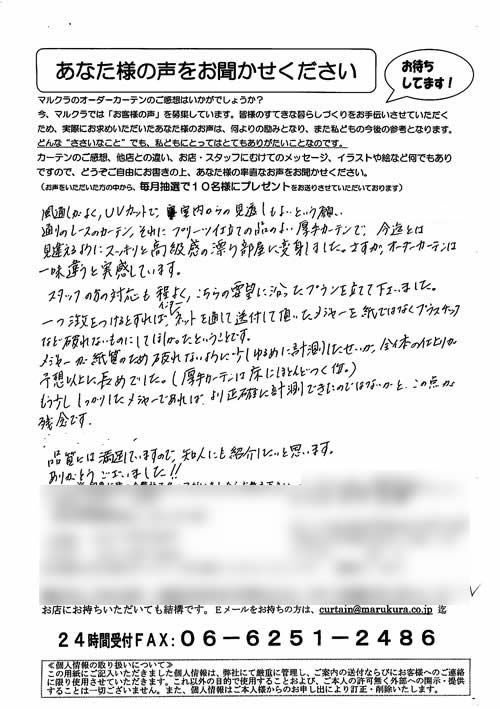 あなた様の声をお聞かせください
お待ち
してます!
マルクラのオーダーカーテンのご感想はいかがでしょうか?
今、マルクラでは「お客様の声」を募集しています。皆様のすてきな暮らしづくりをお手伝いさせていただく
ため、実際にお求めいただいたあなた様のお声は、何よりの励みとなり、また私どもの今後の参考となります。
どんな“ささいなこと”でも、私どもにとってはとてもありがたいことなのです。
カーテンのご感想、他店との違い、お店・スタッフにむけてのメッセージ、イラストや絵など何でもあり
ですので、どうぞご自由にお書きの上、あなた様の率直なお声をお聞かせください。
(お声をいただいた方の中から、毎月抽選で10名様にプレゼントをお送りさせていただいております)
風通しがよく、UVカットで、室内からの見通しもよいという願い
通りのレースのカーテン、それにプリーツ仕立ての品のよい厚手カーテンで、今迄とは
見違えるようにスッキリと高級感の漂う部屋に変身しました。さすが、オーダーカーテンは
一味違うと実感しています。
スタッフの方の対応も程よく、こちらの要望に沿ったプランを立てて下さいました。
一つ難をつけるとすれば、インターネットを通して送付して頂いたメジャーを紙ではなくプラスチック
など破れないものにしてほしかったということです。
メジャーが紙質のため破れないように少しゆるめに計測したせいか、全体の仕上りが
予想以上に長めでした。(厚手カーテンは床にほとんどつく位。)
もう少ししっかりしたメジャーであれば、より正確に計測できたのではないかと、この点が
残念です。
品質には満足していますので、知人にも紹介したいと思います。
ありがとうございました!!
お店にお持ちいただいても結構です。Eメールをお持ちの方は、curtain@marukura.co.jp 迄
24時間受付FAX:06-6251-2486
≪個人情報の取り扱いについて≫
この用紙にご記入いただきました個人情報は、弊社にて厳重に管理し、ご案内の送付ならびにお客様へのご連絡
に限り使用させていただきます。これ以外の目的で使用することおよび、ご本人の許可無く外部への開示・提供
することは一切ございません。また、個人情報はご本人様からのお申し出により訂正・削除いたします。